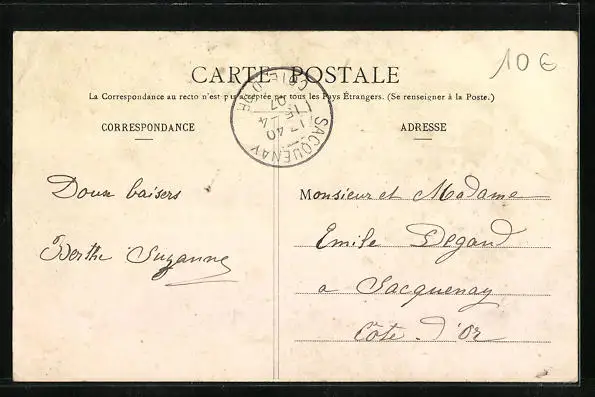 10 €
CARTE POSTALE
La Correspondance au recto n'est pas acceptée par tous les Pays Étrangers. (Se renseigner à la Poste.)
SACQUENAY
CÔTE-D'OR
CORRESPONDANCE
ADRESSE
Doux baisers
Berthe Suzanne
Monsieur et Madame
Emile Degand
a Sacquenay
Côte-d'Or